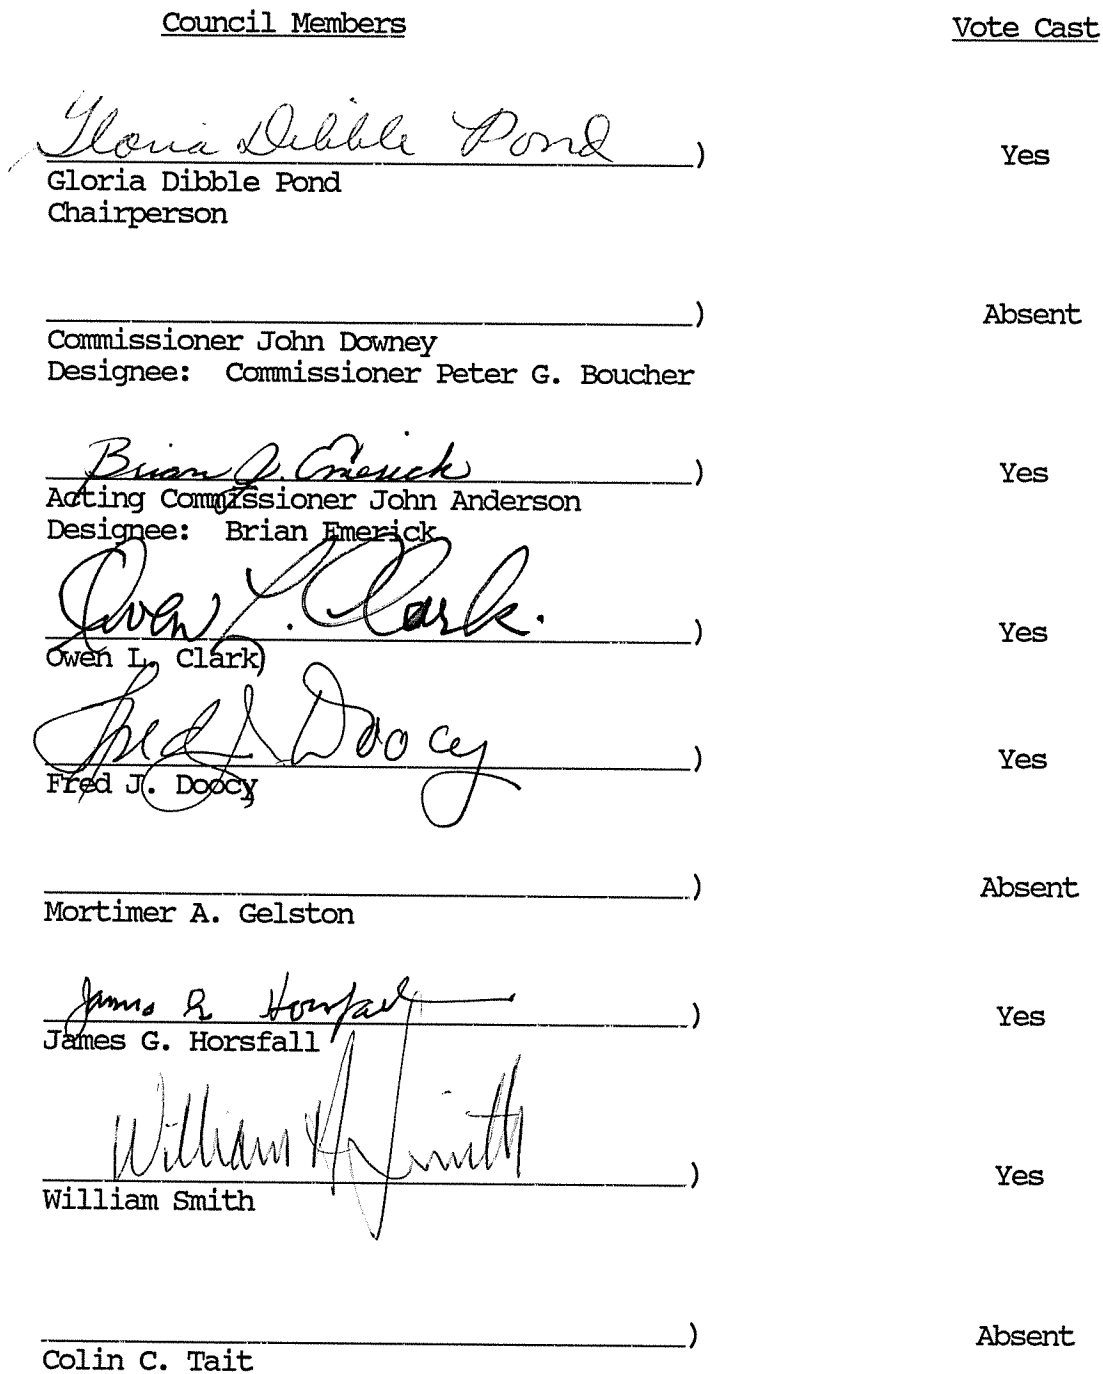 Council Members Vote Cast
Gloria Dibble Pond ) Yes
Gloria Dibble Pond
Chairperson
) Absent
Commissioner John Downey
Designee: Commissioner Peter G. Boucher
Brian J. Emerick ) Yes
Acting Commissioner John Anderson
Designee: Brian Emerick
Owen L. Clark. ) Yes
Owen L. Clark
Fred J. Doocy ) Yes
Fred J. Doocy
) Absent
Mortimer A. Gelston
James G Horsfall ) Yes
James G. Horsfall
William H Smith ) Yes
William Smith
) Absent
Colin C. Tait